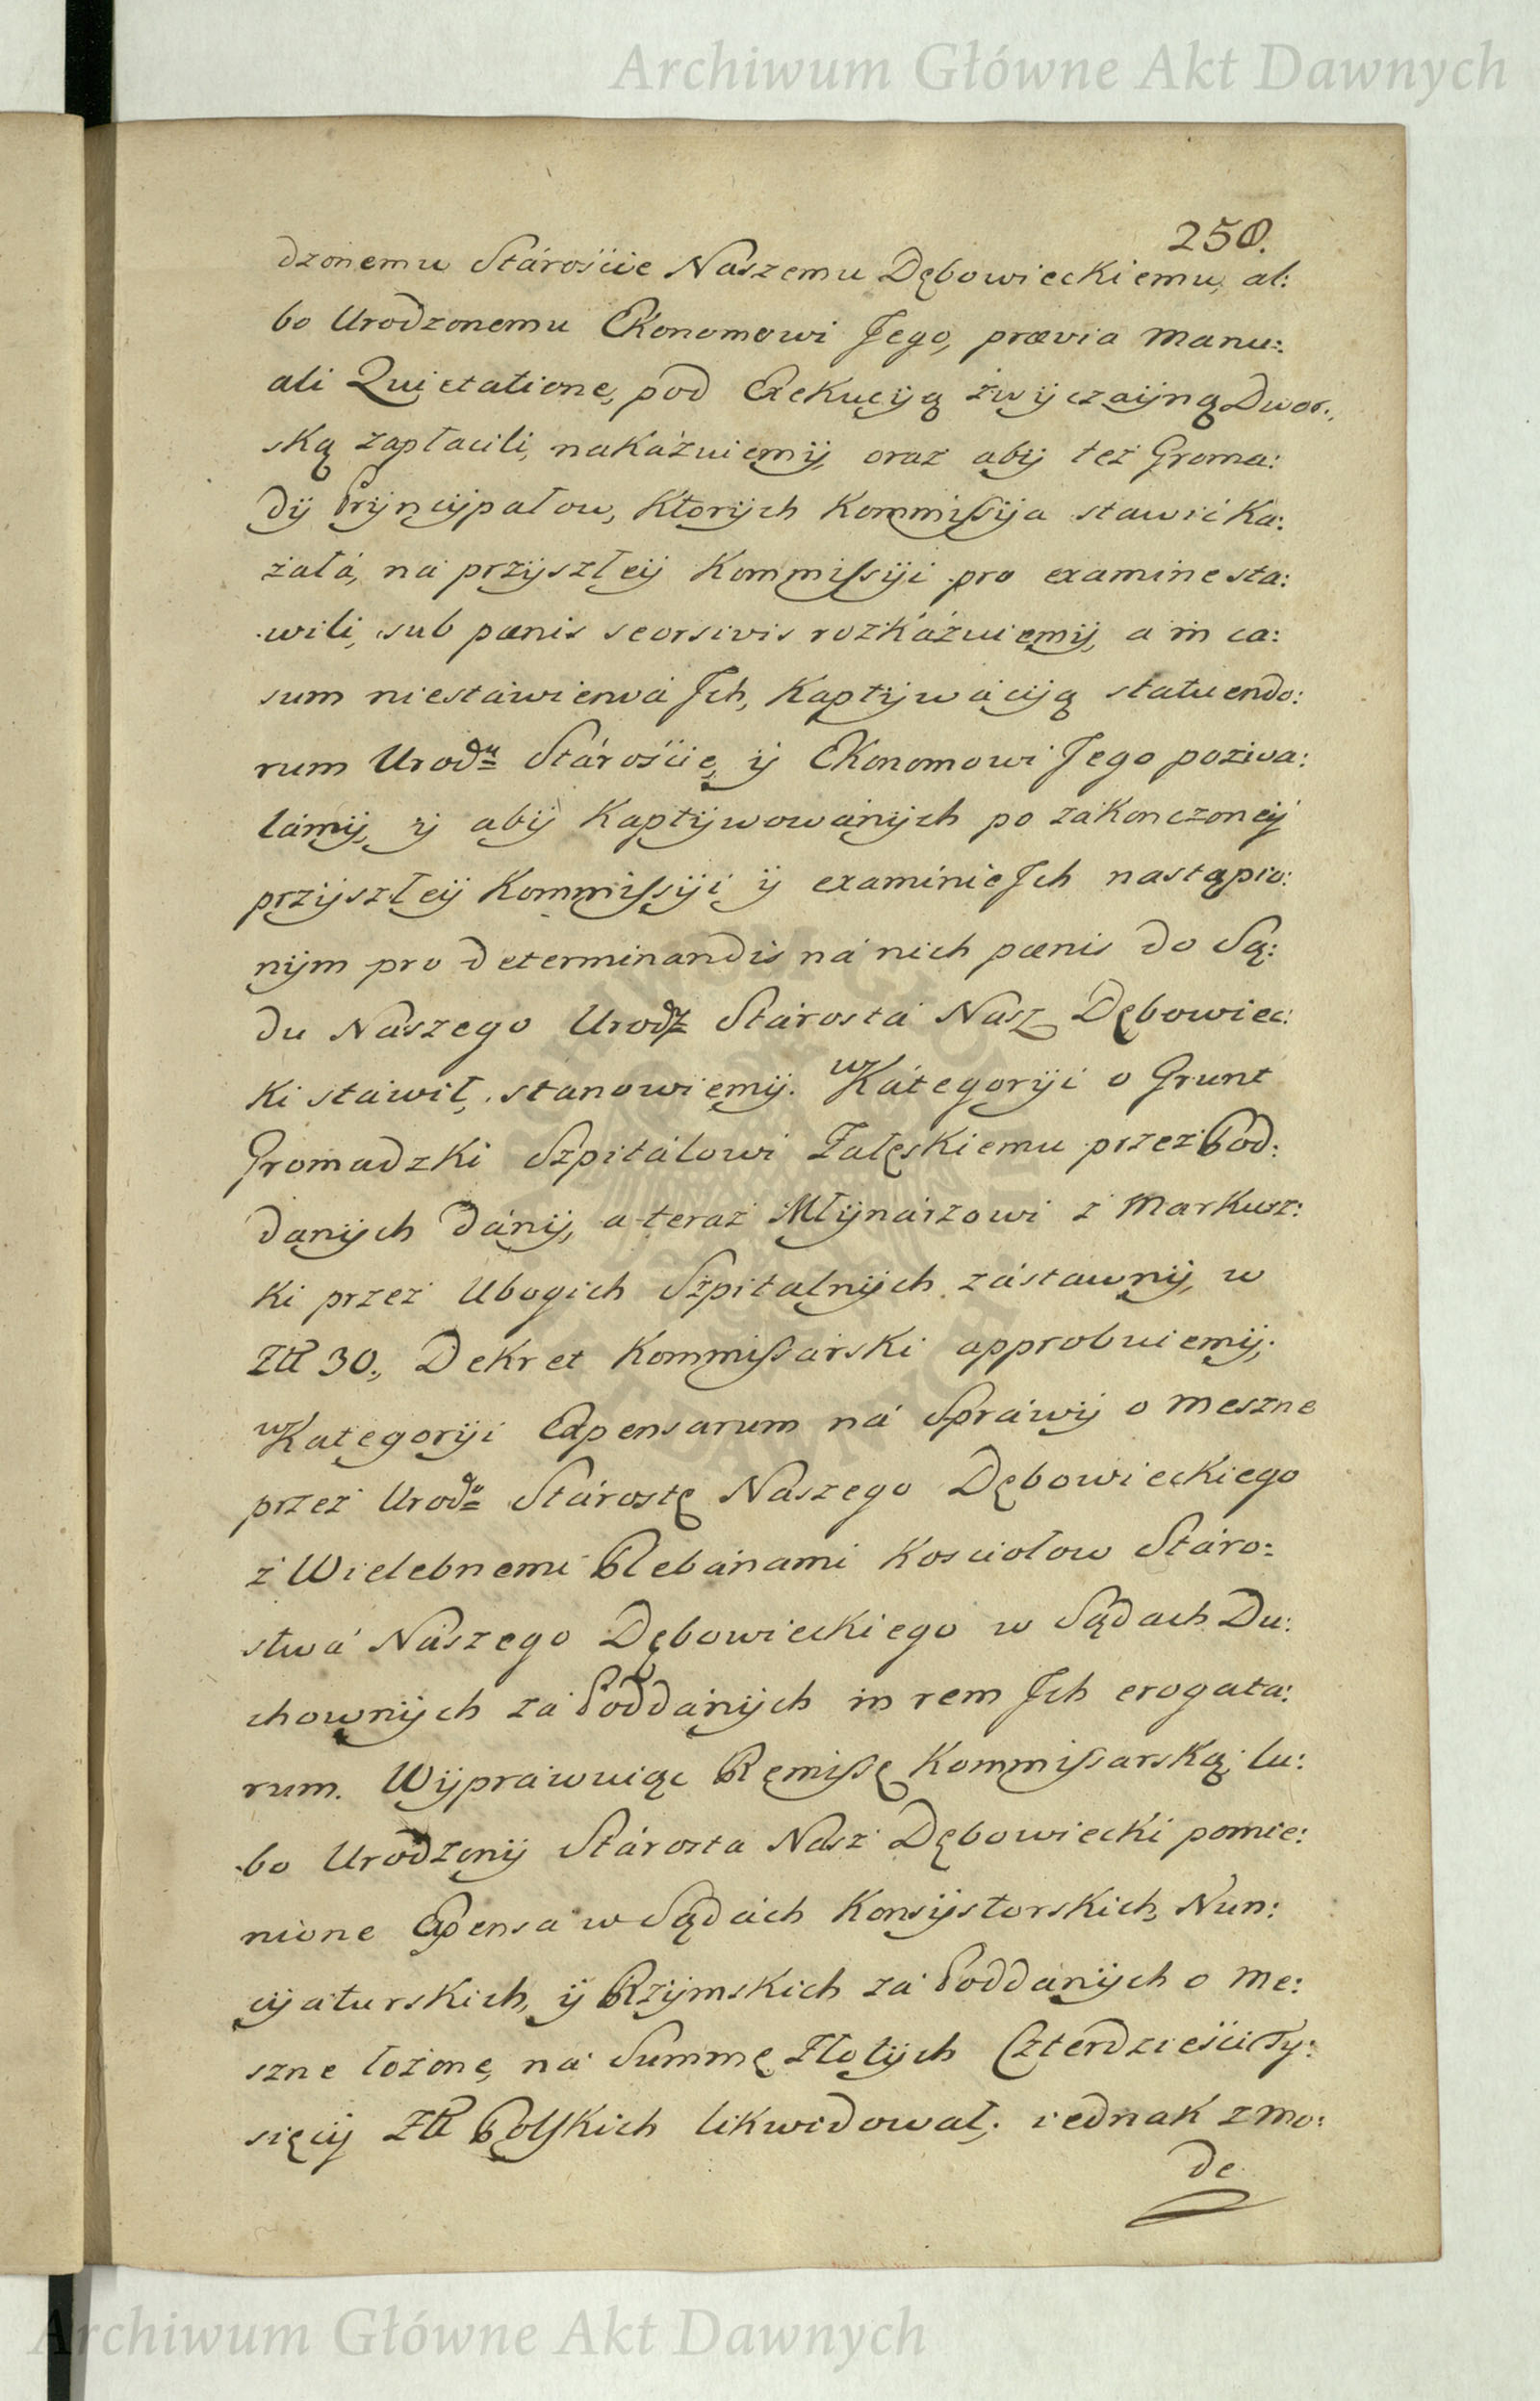 Archiwum Główne Akt Dawnych
258.
dzonemu Stárośćie Nászemu Dębowieckiemu, al:
bo Urodzonemu Ekonomowi Jego, prævia manu:
ali Quietatione, pod Exekucyią zwyczayną Dwor:
ską zapłacili, nakázuiemy, oraz aby też Groma:
dy Pryncypałow, ktorych Kommissya stawić ka:
załá, ná przyszłey Kommissyi pro examine sta:
wili, sub pœnis seorsivis rozkázuiemy, a in ca:
sum niestáwienia Jch, kaptywácyią statuendo:
rum Urodu Stárośćie, y Ekonomowi Jego pozwa:
lámy, y aby kaptywowánych po zákonczoney
przyszłey Kommissyi y examinie Jch nastąpio:
nym pro determinandis ná nich pœnis do Są:
du Nászego Urodz Stárostá Nász Dębowiec:
ki stáwił, stanowiemy. w Kátegoryi o Grunt
Gromadzki Szpitálowi Załęskiemu przez Pod:
danych dány, a teraz Młynárzowi z Markusz:
ki przez Ubogich Szpitalnych zástawny, w
Zł 30., Dekret Kommissárski approbuiemy;
w Kategoryi Expensarum ná Spráwy o meszne
przez Urodo Stárostę Nászego Dębowieckiego
z Wielebnemi Plebánami Kosciołow Stáro:
stwá Nászego Dębowieckiego w Sądach Du:
chownych zá Poddánych in rem Jch erogata:
rum. Wypráwuiąc Remissę Kommissarską; lu:
bo Urodzony Stárosta Nász Dębowiecki pomie:
nione Expensa w Sądách Konsystorskich, Nun:
cyaturskich, y Rzymskich zá Poddánych o me:
szne łożone, ná Summę Złotych Czterdzieśći Ty:
sięcy Zł Polskich likwidował; iednak z mo:
de
Archiwum Główne Akt Dawnych